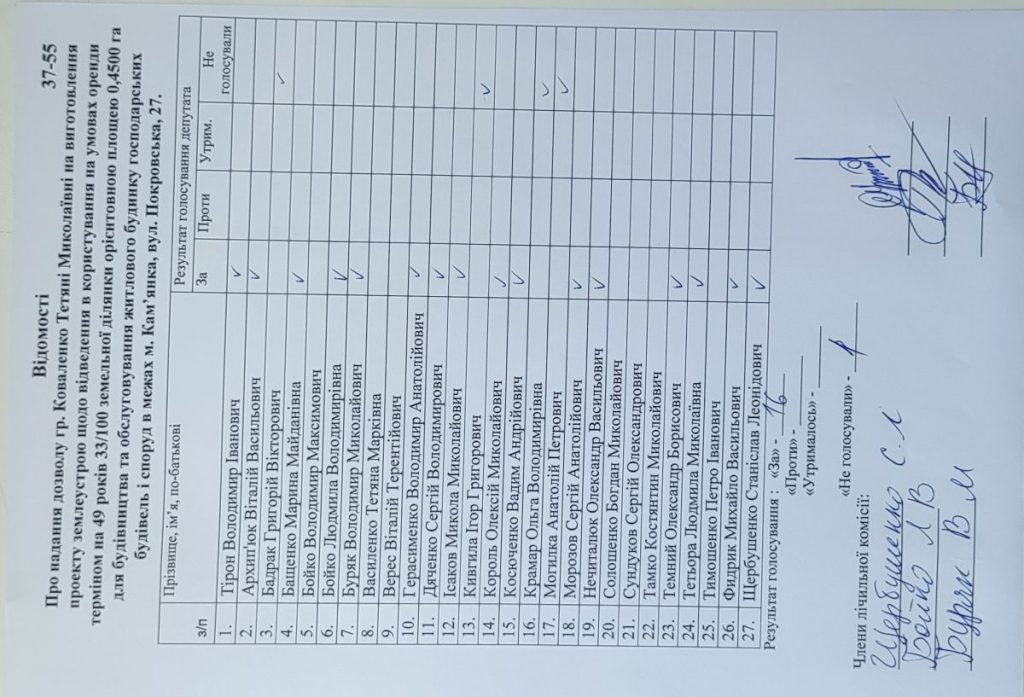 Відомості 37-55
Про надання дозволу гр. Коваленко Тетяні Миколаївні на виготовлення
проекту землеустрою щодо відведення в користування на умовах оренди
терміном на 49 років 33/100 земельної ділянки орієнтовною площею 0,4500 га
для будівництва та обслуговування житлового будинку господарських
будівель і споруд в межах м. Кам’янка, вул. Покровська, 27.
з/п Прізвище, ім’я, по-батькові Результат голосування депутата
За Проти Утрим. Не голосували
1. Тірон Володимир Іванович ✓
2. Архип'юк Віталій Васильович ✓
3. Бадрак Григорій Вікторович ✓
4. Бащенко Марина Майданівна ✓
5. Бойко Володимир Максимович
6. Бойко Людмила Володимирівна ✓
7. Буряк Володимир Миколайович ✓
8. Василенко Тетяна Марківна
9. Верес Віталій Терентійович
10. Герасименко Володимир Анатолійович ✓
11. Дяченко Сергій Володимирович ✓
12. Ісаков Микола Миколайович ✓
13. Кивгила Ігор Григорович ✓
14. Король Олексій Миколайович ✓
15. Косюченко Вадим Андрійович ✓
16. Крамар Ольга Володимирівна ✓
17. Могилка Анатолій Петрович ✓
18. Морозов Сергій Анатолійович ✓
19. Нечиталюк Олександр Васильович ✓
20. Солошенко Богдан Миколайович
21. Сундуков Сергій Олександрович
22. Тамко Костянтин Миколайович
23. Темний Олександр Борисович ✓
24. Тетьора Людмила Іванівна ✓
25. Тимошенко Петро Іванович
26. Фидрик Михайло Васильович ✓
27. Щербушенко Станіслав Леонідович ✓
Результат голосування : «За» - 16
«Проти» -
«Утрималось» -
«Не голосували» - 4
Члени лічильної комісії:
Щербушенко С.Л
Бойко Л В
Буряк В М